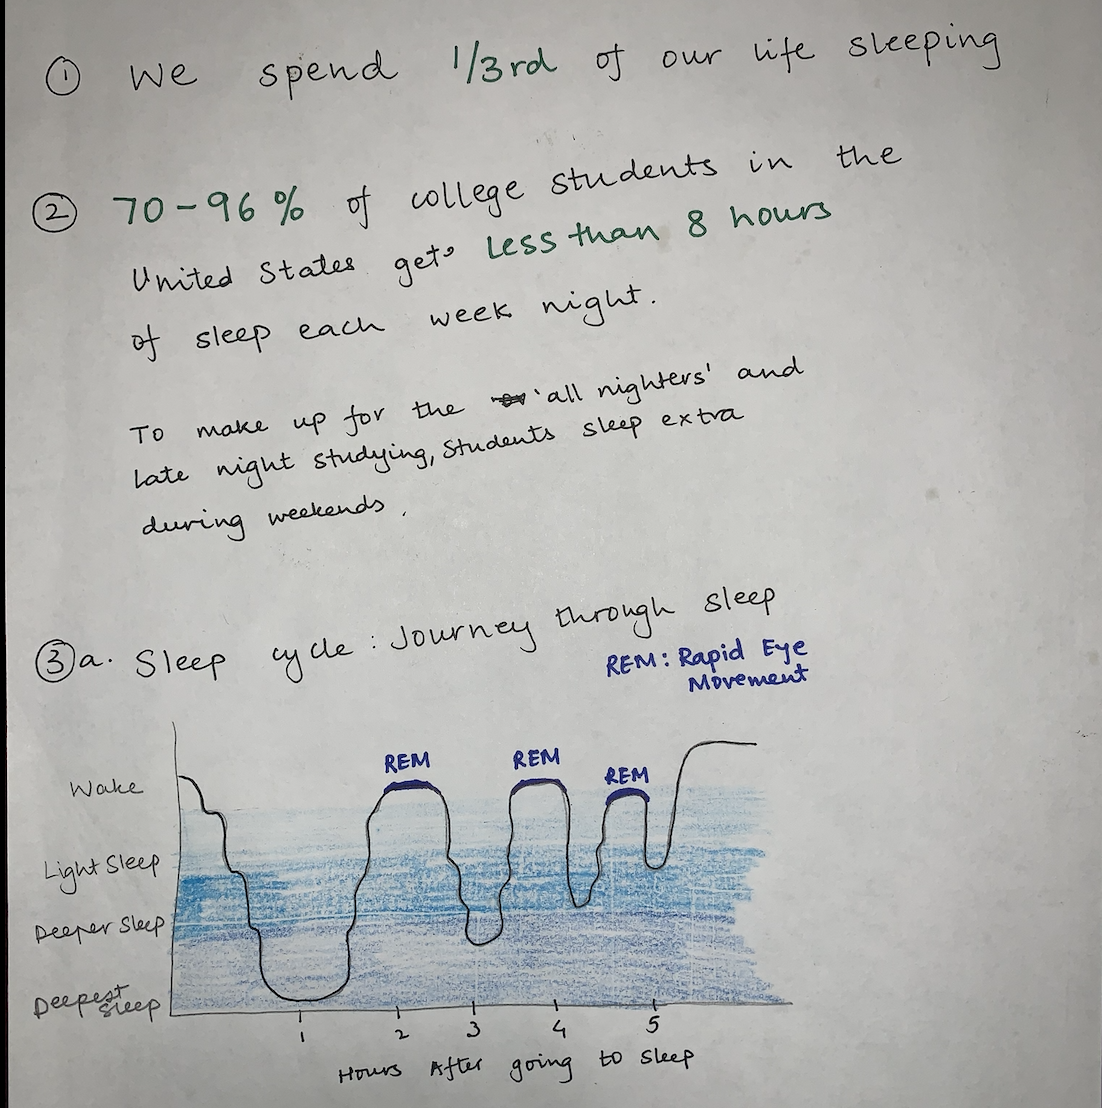 ① We spend 1/3rd of our life sleeping
② 70-96% of college students in the
United States gets less than 8 hours
of sleep each week night.
To make up for the 'all nighters' and
late night studying, students sleep extra
during weekends.
③a. Sleep cycle: Journey through sleep
REM: Rapid Eye
Movement
REM REM REM
Wake
Light Sleep
Deeper Sleep
Deepest
Sleep
1 2 3 4 5
Hours After going to sleep